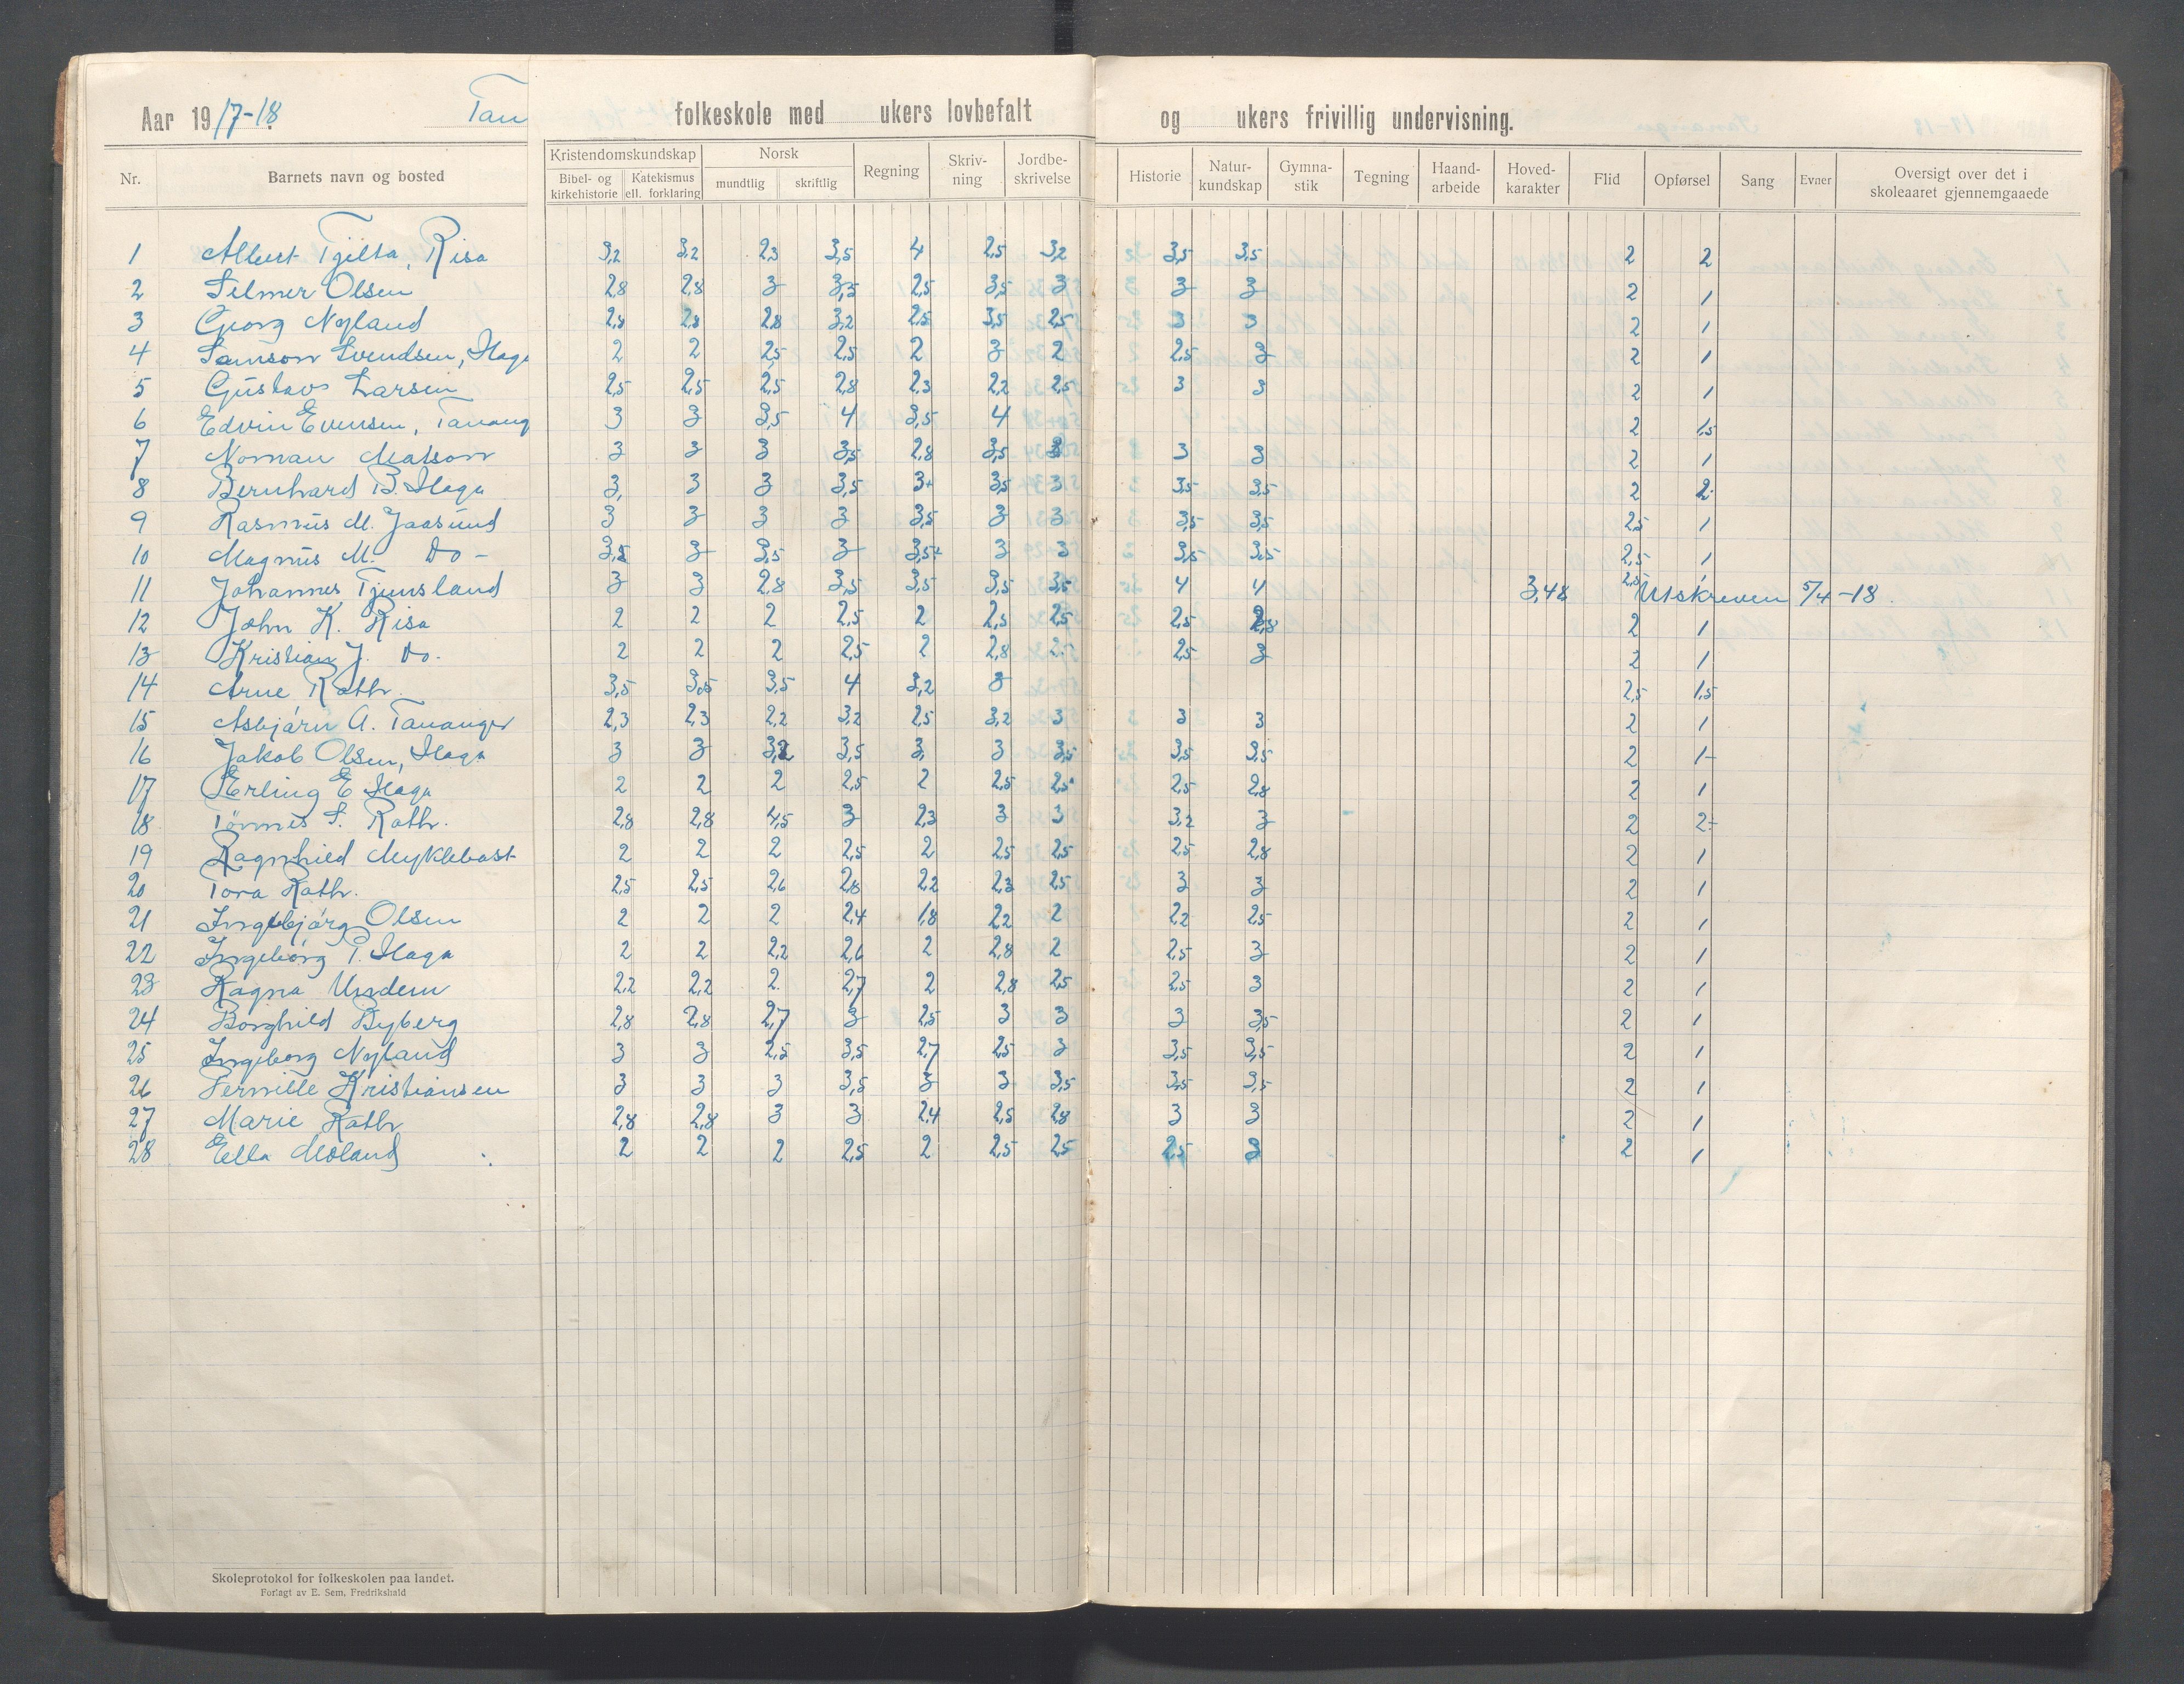 Aar 1917-18 Tan folkeskole med ukers lovbefalt og ukers frivillig undervisning.
Nr. Barnets navn og bosted Kristendomskundskap Bibel- og kirkehistorie Katekismus ell. forklaring Norsk mundtlig skriftlig Regning Skriv-ning Jordbe-skrivelse Historie Natur-kundskap Gymna-stik Tegning Haand-arbeide Hoved-karakter Flid Opførsel Sang Evner Oversigt over det i skoleaaret gjennemgaaede
1 Albert Tjelta, Risa 3,2 3,2 2,3 3,5 4 2,5 3,2 3,5 3,5 2 2
2 Selmer Olsen 2,8 2,8 3 3,5 2,5 3,5 3 3 3 2 1
3 Georg Nyland 2,8 2,8 2,8 3,2 2,5 3,5 2,5 3 3 2 1
4 Samson Svendsen, Haga 2 2 2,5 2,5 2 3 2 2,5 3 2 1
5 Gustav Larsen 2,5 2,5 2,5 2,8 2,3 2,2 2,5 3 3 2 1
6 Edvin Evensen, Tanang 3 3 3,5 4 3,5 4 2 1,5
7 Norman Matson 3 3 3 3,5 2,8 3,5 3 3 3 2 1
8 Bernhard B. Haga 3, 3 3 3,5 3+ 3,5 3 3,5 3,5 2 2
9 Rasmus M. Jaasund 3 3 3 3 3,5 3 3 3,5 3,5 2,5 1
10 Magnus M. Do - 3,5 3 3,5 3 3,5+ 3 3 3,5 3,5 2,5 1
11 Johannes Tjemsland 3 3 2,8 3,5 3,5 3,5 3,5 4 4 3,48 2,5 Utskreven 5/4-18.
12 John K. Risa 2 2 2 2,5 2 2,5 2,5 2,5 2,8 2 1
13 Kristian J. Do. 2 2 2 2,5 2 2,8 2,5 2,5 3 2 1
14 Arne Roth. 3,5 3,5 3,5 4 3,2 3 2,5 1,5
15 Asbjørn A. Tananger 2,3 2,3 2,2 3,2 2,5 3,2 3 3 3 2 1
16 Jakob Olsen, Haga 3 3 3,2 3,5 3, 3 3,5 3,5 3,5 2 1-
17 Erling E Haga 2 2 2 2,5 2 2,5 2,5 2,5 2,8 2 1
18 Tønnes S. Roth. 2,8 2,8 4,5 3 2,3 3 3 3,2 3 2 2-
19 Ragnhild Myklebost 2 2 2 2,5 2 2,5 2,5 2,5 2,8 2 1
20 Tora Roth. 2,5 2,5 2,6 2,8 2,2 2,3 2,5 3 3 2 1
21 Ingebjørg Olsen 2 2 2 2,4 1,8 2,2 2 2,2 2,5 2 1
22 Ingeborg T. Haga 2 2 2,2 2,6 2 2,8 2 2,5 3 2 1
23 Ragna Undem 2,2 2,2 2. 2,7 2 2,8 2,5 2,5 3 2 1
24 Borghild Byberg 2,8 2,8 2,7 3 2,5 3 3 3 3,5 2 1
25 Ingeborg Nyland 3 3 2,5 3,5 2,7 2,5 3 3,5 3,5 2 1
26 Pernille Kristiansen 3 3 3 3,5 3 3 3,5 3,5 3,5 2 1
27 Marie Roth 2,8 2,8 3 3 2,4 2,5 2,8 3 3 2 1
28 Ella Meland 2 2 2 2,5 2 2,5 2,5 2,5 3 2 1
Skoleprotokol for folkeskolen paa landet.
Forlagt av E. Sem, Fredrikshald